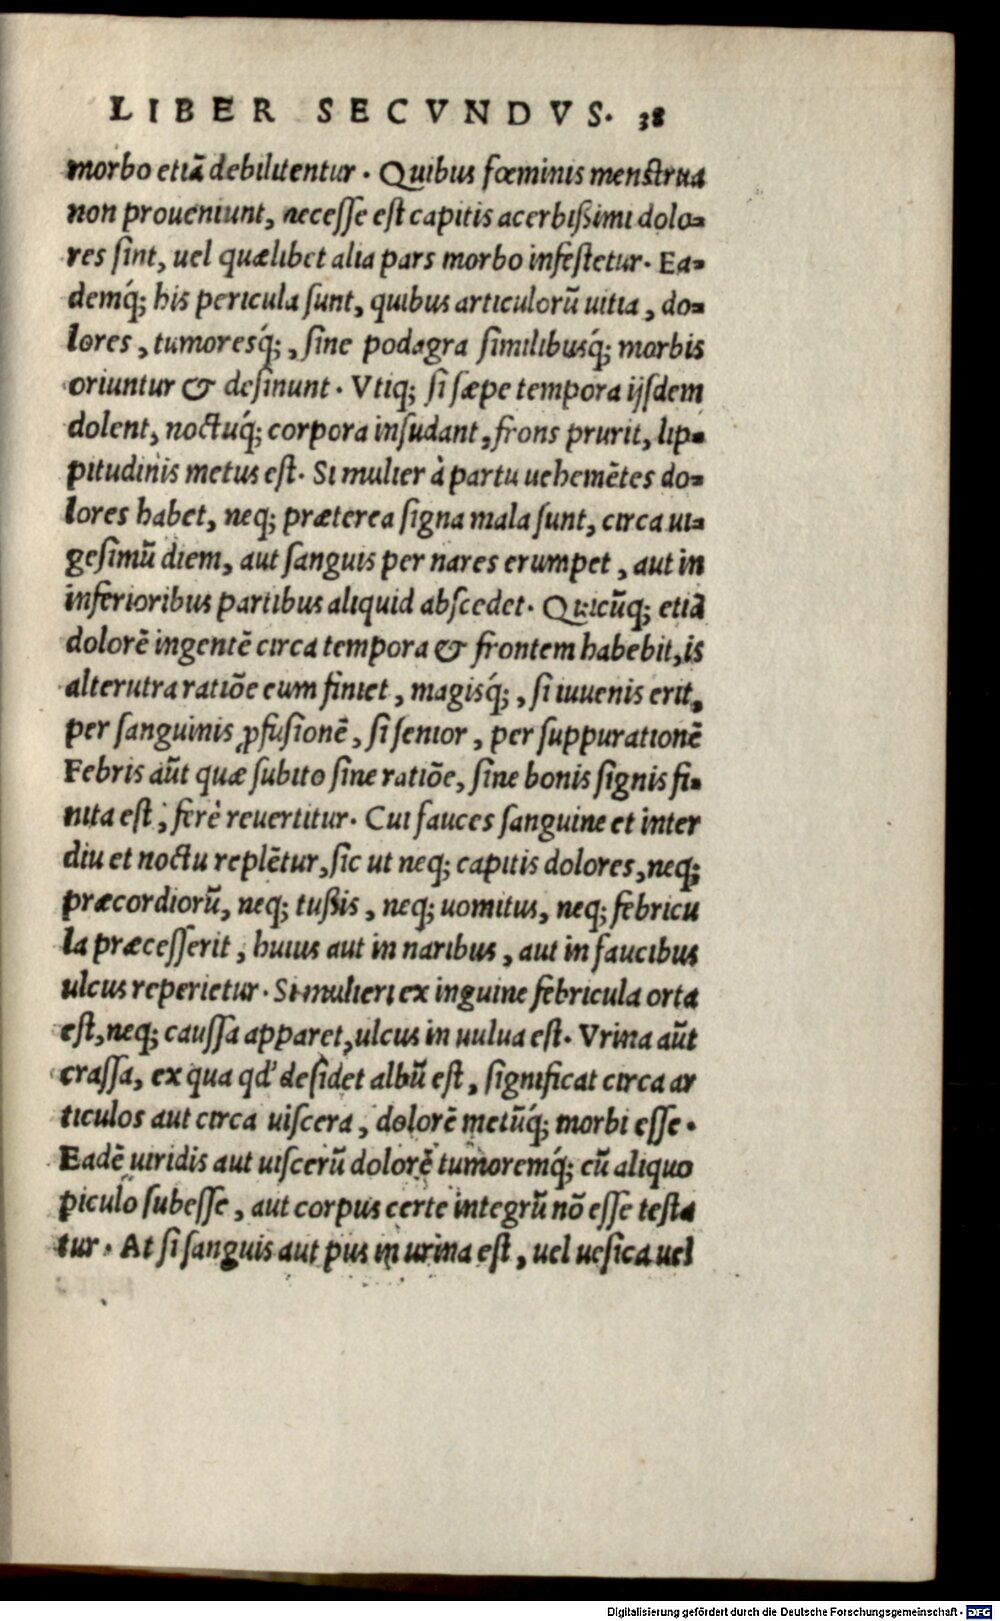 LIBER SECVNDVS. 38
morbo etiã debilitentur. Quibus fœminis menstrua
non proueniunt, necesse est capitis acerbißimi dolo-
res sint, uel quælibet alia pars morbo infestetur. Ea-
demq́; his pericula sunt, quibus articulorũ uitia, do-
lores, tumoresq́;, sine podagra similibusq́; morbis
oriuntur & desinunt. Vtiq; si sæpe tempora ijsdem
dolent, noctuq́; corpora insudant, frons prurit, lip-
pitudinis metus est. Si mulier à partu uehemẽtes do-
lores habet, neq; præterea signa mala sunt, circa ui-
gesimũ diem, aut sanguis per nares erumpet, aut in
inferioribus partibus aliquid abscedet. Quicũq; etiã
dolorẽ ingentẽ circa tempora & frontem habebit, is
alterutra ratiõe eum finiet, magisq́;, si iuuenis erit,
per sanguinis ꝓfusionẽ, si senior, per suppurationẽ
Febris aũt quæ subito sine ratiõe, sine bonis signis fi-
nita est, ferè reuertitur. Cui fauces sanguine et inter
diu et noctu replẽtur, sic ut neq; capitis dolores, neq;
præcordiorũ, neq; tußis, neq; uomitus, neq; febricu
la præcesserit, huius aut in naribus, aut in faucibus
ulcus reperietur. Si mulieri ex inguine febricula orta
est, neq; caussa apparet, ulcus in uulua est. Vrina aũt
crassa, ex qua qd' desidet albũ est, significat circa ar
ticulos aut circa uiscera, dolorẽ metũq́; morbi esse.
Eadẽ uiridis aut uiscerũ dolorẽ tumoremq́; cũ aliquo
piculo subesse, aut corpus certe integrũ nõ esse testa
tur. At si sanguis aut pus in urina est, uel uesica uel
Digitalisierung gefördert durch die Deutsche Forschungsgemeinschaft - DFG